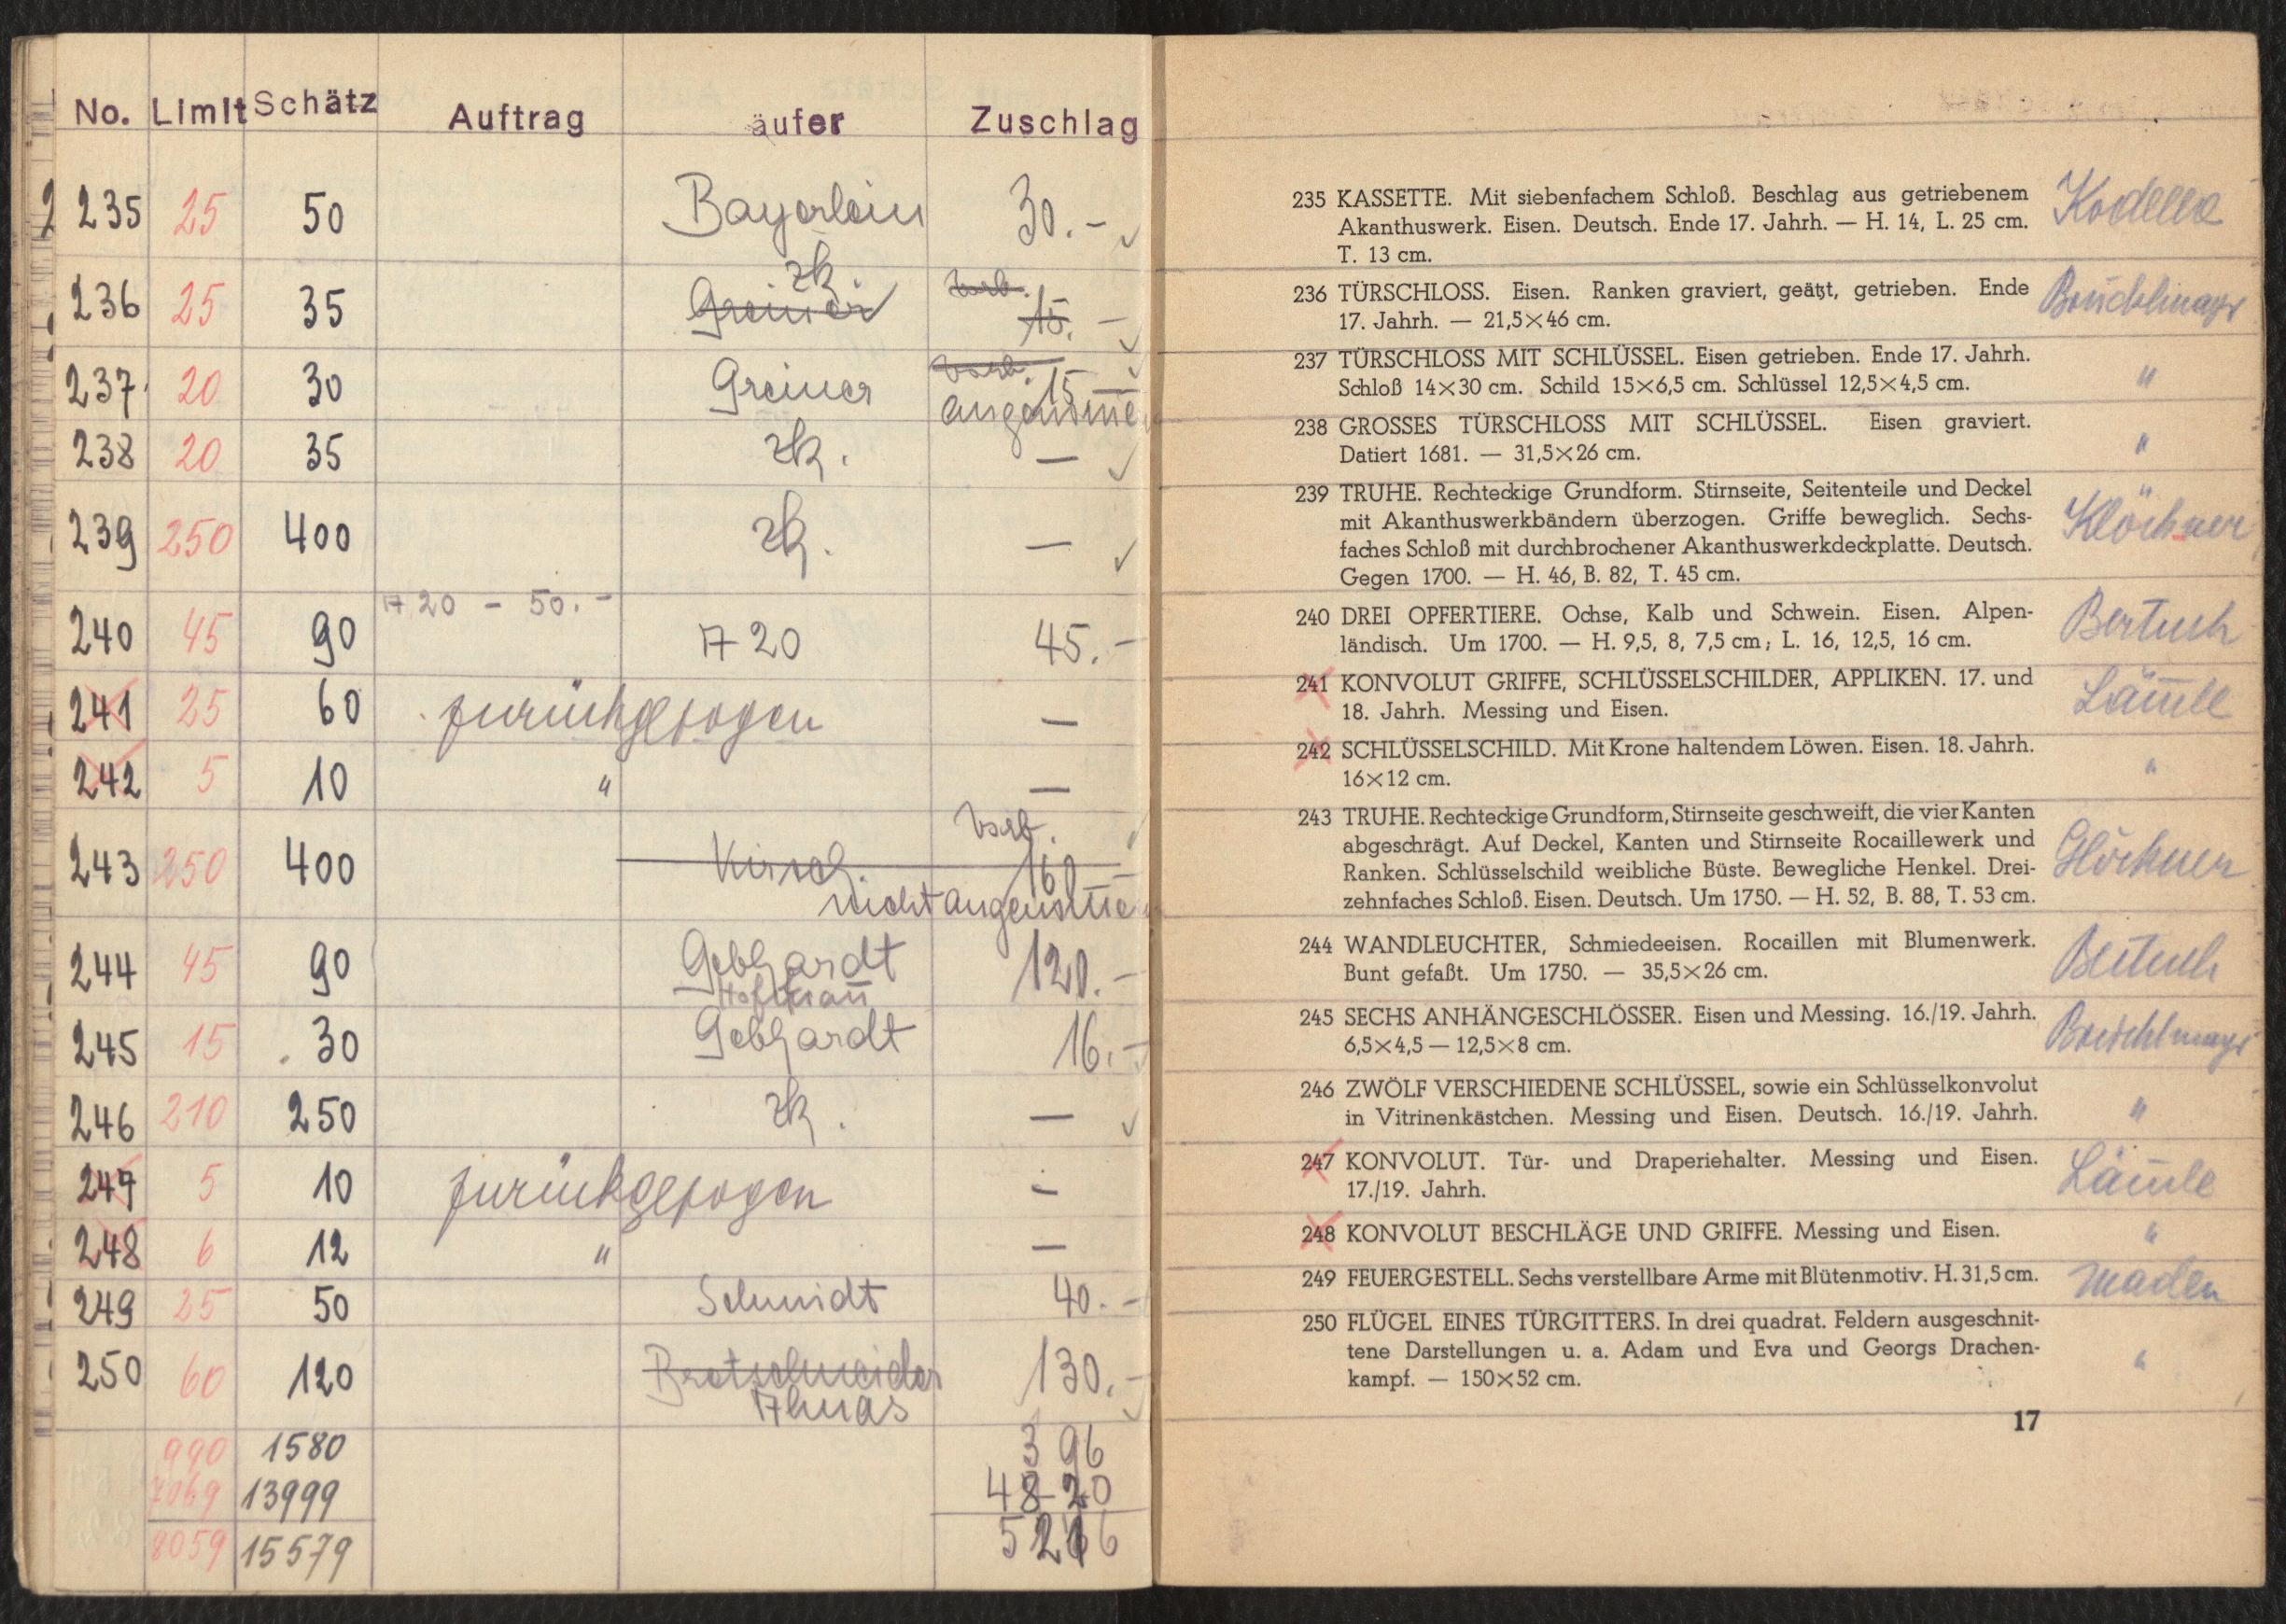 No. Limit Schätz Auftrag äufer Zuschlag
235 25 50 Bayerlein 30.-
236 25 35 Greiner zk. vorb. 15. -
237 20 30 Greiner vorb. 15 angenome
238 20 35 zk. —
239 250 400 zk. —
240 45 90 A 20 - 50.- A 20 45.-
241 25 60 zurückgezogen —
242 5 10 " —
243 250 400 Kirsch. vorb. 160
nicht angenome
244 45 90 Gebhardt 120.-
Hofmann
245 15 30 Gebhardt 16.-
246 210 250 zk. —
247 5 10 zurückgezogen -
248 6 12 " —
249 25 50 Schmidt 40.-
250 60 120 Bretschneider 130.-
990 1580 396
7069 13999 4820
8059 15579 5216
235 KASSETTE. Mit siebenfachem Schloß. Beschlag aus getriebenem
Akanthuswerk. Eisen. Deutsch. Ende 17. Jahrh. — H. 14, L. 25 cm.
T. 13 cm.
236 TÜRSCHLOSS. Eisen. Ranken graviert, geätzt, getrieben. Ende
17. Jahrh. — 21,5×46 cm.
237 TÜRSCHLOSS MIT SCHLÜSSEL. Eisen getrieben. Ende 17. Jahrh.
Schloß 14×30 cm. Schild 15×6,5 cm. Schlüssel 12,5×4,5 cm.
"
238 GROSSES TÜRSCHLOSS MIT SCHLÜSSEL. Eisen graviert.
Datiert 1681. — 31,5×26 cm.
"
239 TRUHE. Rechteckige Grundform. Stirnseite, Seitenteile und Deckel
mit Akanthuswerkbändern überzogen. Griffe beweglich. Sechs-
faches Schloß mit durchbrochener Akanthuswerkdeckplatte. Deutsch.
Gegen 1700. — H. 46, B. 82, T. 45 cm.
Klöckner
240 DREI OPFERTIERE. Ochse, Kalb und Schwein. Eisen. Alpen-
ländisch. Um 1700. — H. 9,5, 8, 7,5 cm; L. 16, 12,5, 16 cm.
Bertuch
241 KONVOLUT GRIFFE, SCHLÜSSELSCHILDER, APPLIKEN. 17. und
18. Jahrh. Messing und Eisen.
Lämle
242 SCHLÜSSELSCHILD. Mit Krone haltendem Löwen. Eisen. 18. Jahrh.
16×12 cm.
"
243 TRUHE. Rechteckige Grundform, Stirnseite geschweift, die vier Kanten
abgeschrägt. Auf Deckel, Kanten und Stirnseite Rocaillewerk und
Ranken. Schlüsselschild weibliche Büste. Bewegliche Henkel. Drei-
zehnfaches Schloß. Eisen. Deutsch. Um 1750. — H. 52, B. 88, T. 53 cm.
Glöckner
244 WANDLEUCHTER, Schmiedeeisen. Rocaillen mit Blumenwerk.
Bunt gefaßt. Um 1750. — 35,5×26 cm.
Bertuch
245 SECHS ANHÄNGESCHLÖSSER. Eisen und Messing. 16./19. Jahrh.
6,5×4,5 — 12,5×8 cm.
246 ZWÖLF VERSCHIEDENE SCHLÜSSEL, sowie ein Schlüsselkonvolut
in Vitrinenkästchen. Messing und Eisen. Deutsch. 16./19. Jahrh.
"
247 KONVOLUT. Tür- und Draperiehalter. Messing und Eisen.
17./19. Jahrh.
Lämle
248 KONVOLUT BESCHLÄGE UND GRIFFE. Messing und Eisen.
"
249 FEUERGESTELL. Sechs verstellbare Arme mit Blütenmotiv. H. 31,5 cm.
250 FLÜGEL EINES TÜRGITTERS. In drei quadrat. Feldern ausgeschnit-
tene Darstellungen u. a. Adam und Eva und Georgs Drachen-
kampf. — 150×52 cm.
"
17